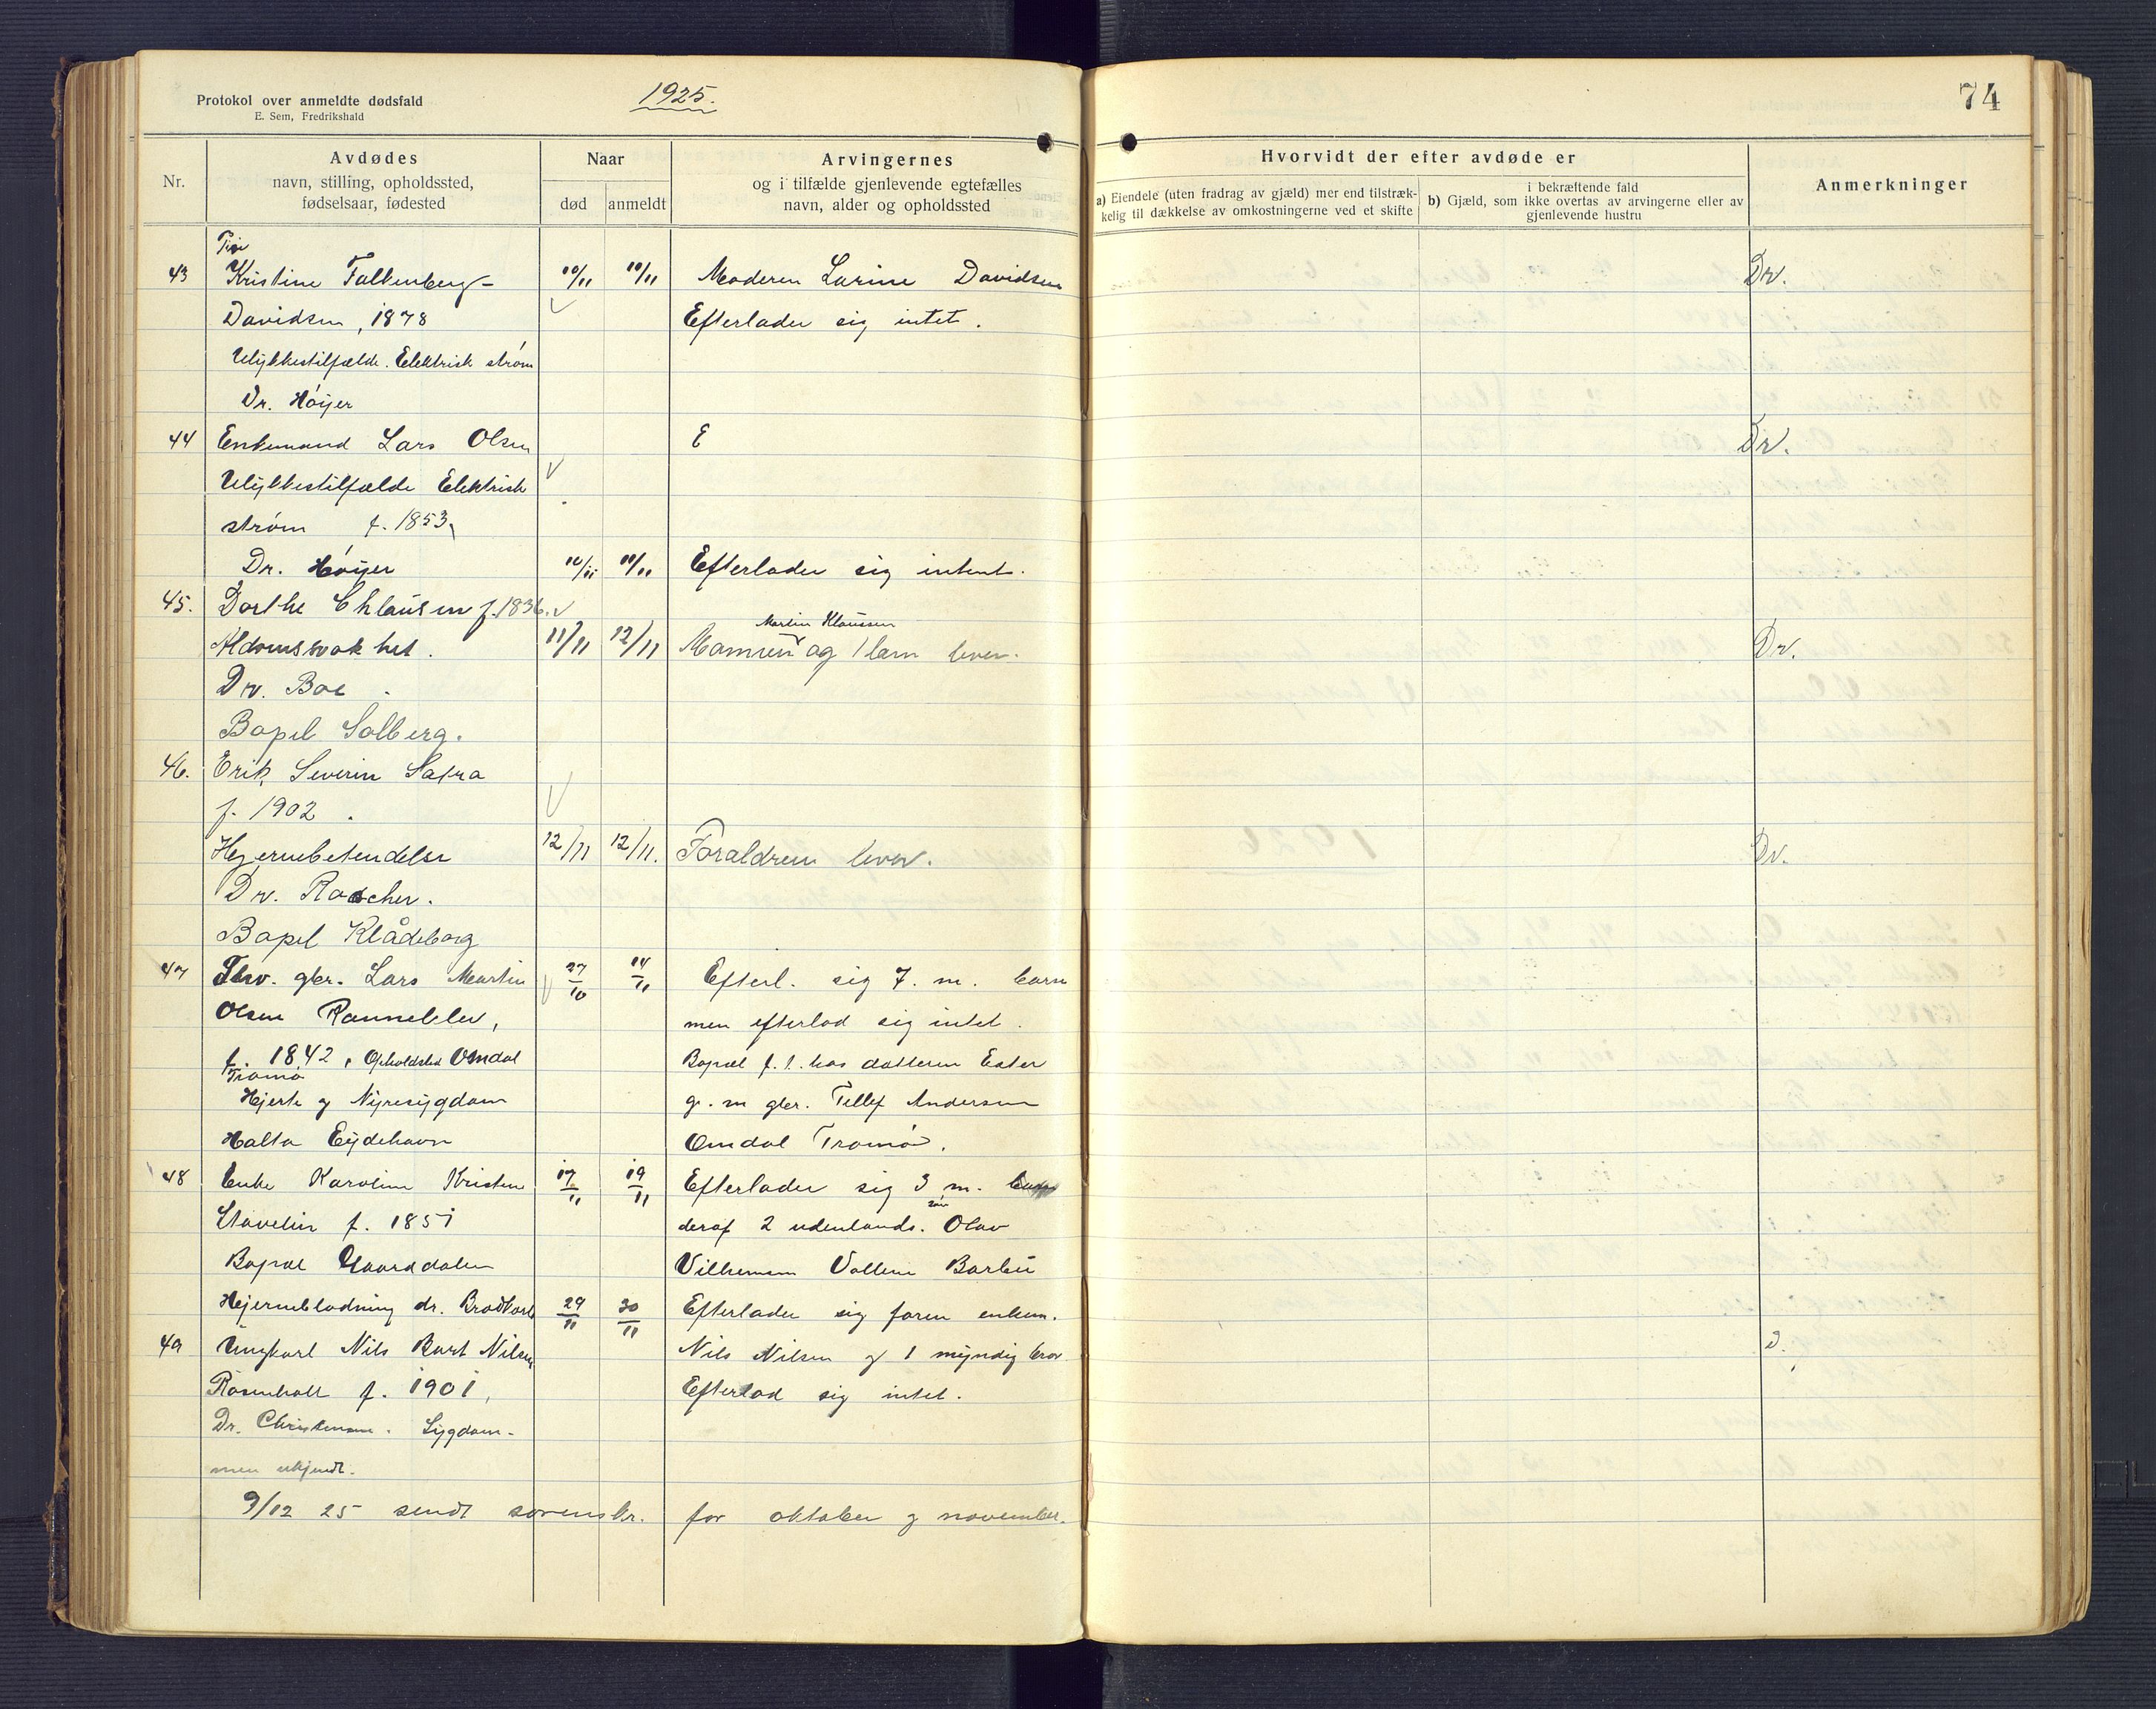 Protokol over anmeldte dødsfald
E. Sem, Fredrikshald
1925.
74
Nr.
Avdødes
navn, stilling, opholdssted,
fødselsaar, fødested
Naar
død
anmeldt
Arvingernes
og i tilfælde gjenlevende egtefælles
navn, alder og opholdssted
Hvorvidt der efter avdøde er
a) Eiendele (uten fradrag av gjæld) mer end tilstræk-
kelig til dækkelse av omkostningerne ved et skifte
i bekræftende fald
b) Gjæld, som ikke overtas av arvingerne eller av
gjenlevende hustru
Anmerkninger
43 Kristine Falkenberg- 10/11 11/11 Moderen Larine Davidsen Dr.
Davidsen, 1878 Efterlader sig intet.
Ulykkestilfælde. Elektrisk strøm
Dr. Høyer
44 Enkemand Lars Olsen E Dr.
Ulykkestilfælde Elektrisk
strøm f. 1853
Dr. Høyer 10/11 11/11 Efterlader sig intent.
45. Dorthe Chlausen f. 1836.
Martin Klaussen
Aldomssvakhet. 11/11 12/11 og 1 barn lever. Dr.
Dr. Boe
Bopel Solberg.
46. Erik Severin
f. 1902.
Hjernebetendelse 12/11 12/11. Foraldren lever. Dr.
Dr. Roscher.
Bopel Klådeborg
47 gbr. Lars Martin 27/10 14/11 Efterl. sig 7. m. barn
Olsen Ranneklev, men efterlod sig intet.
f. 1842, Opholdsted Omdal Bopæl f. t. hos datteren Ester
Tromø
Hjerte og Nyresygdom g. m gbr. Tellef Andersen
Halta Eydehavn Omdal Tromø.
48 Enke Karoline Kristine 17/11 19/11 Efterlader sig 3 m. barn
Stavelin f. 1851 deraf 2 udenlands. Olav
Bopæl Gaarddalen Vilhemsen Vollene Barbu
Hjerneblødning dr. 29/11 30/11 Efterlader sig faren enkem.
49 Ungkarl Nils Bart Nilsen Nils Nilsen og 1 myndig bror
Rosenholt f. 1901, Efterlod sig intet.
Dr. Christensen. Sygdom-
men ukjendt.
9/12 25 sendt sorenskr. for oktober og november.